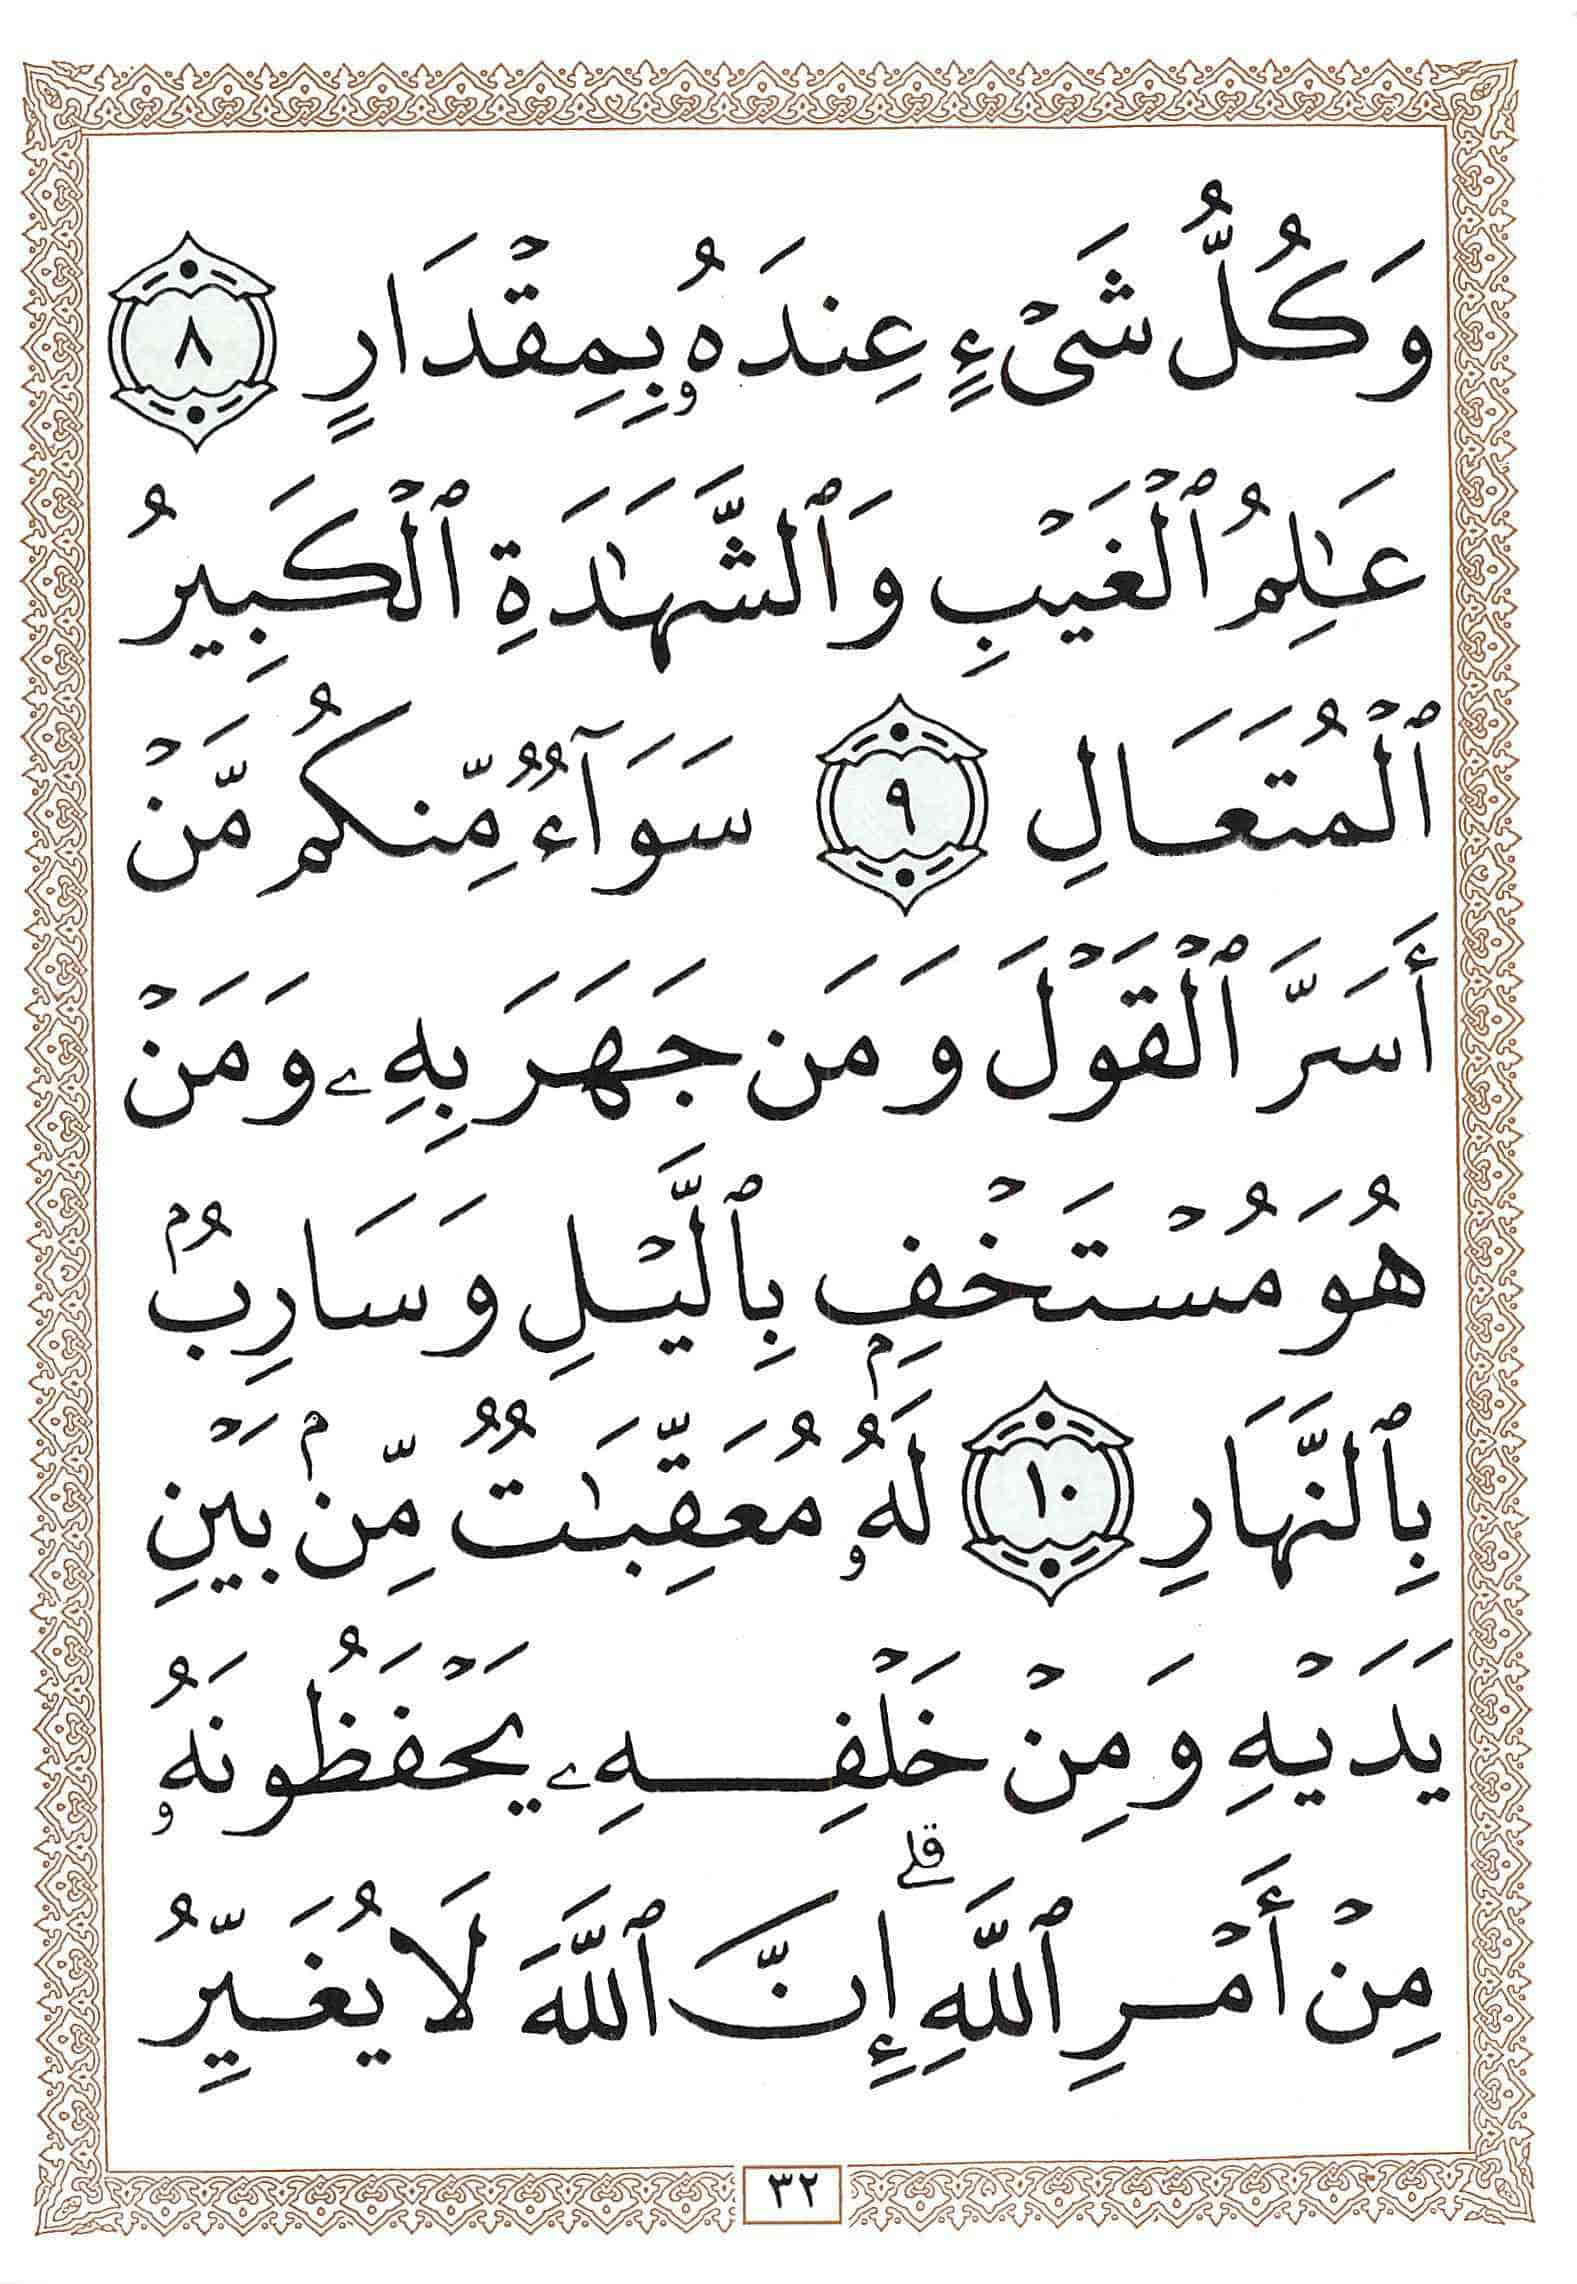 وَكُلُّ شَىْءٍ عِندَهُۥ بِمِقْدَارٍ ٨
عَـٰلِمُ ٱلْغَيْبِ وَٱلشَّهَـٰدَةِ ٱلْكَبِيرُ
ٱلْمُتَعَالِ ٩ سَوَآءٌ مِّنكُم مَّنْ
أَسَرَّ ٱلْقَوْلَ وَمَن جَهَرَ بِهِۦ وَمَنْ
هُوَ مُسْتَخْفِۭ بِٱلَّيْلِ وَسَارِبُۢ
بِٱلنَّهَارِ ١٠ لَهُۥ مُعَقِّبَـٰتٌ مِّنۢ بَيْنِ
يَدَيْهِ وَمِنْ خَلْفِهِۦ يَحْفَظُونَهُۥ
مِنْ أَمْرِ ٱللَّهِ ۗ إِنَّ ٱللَّهَ لَا يُغَيِّرُ
٣٢